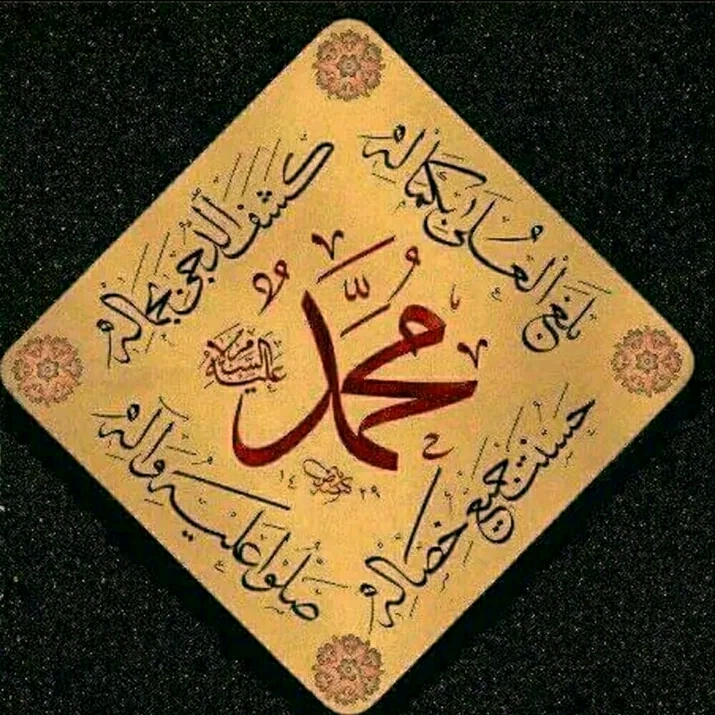 بلغ العلى بكماله
كشف الدجى بجماله
محمد
عليه السلام
حسنت جميع خصاله
صلوا عليه وآله